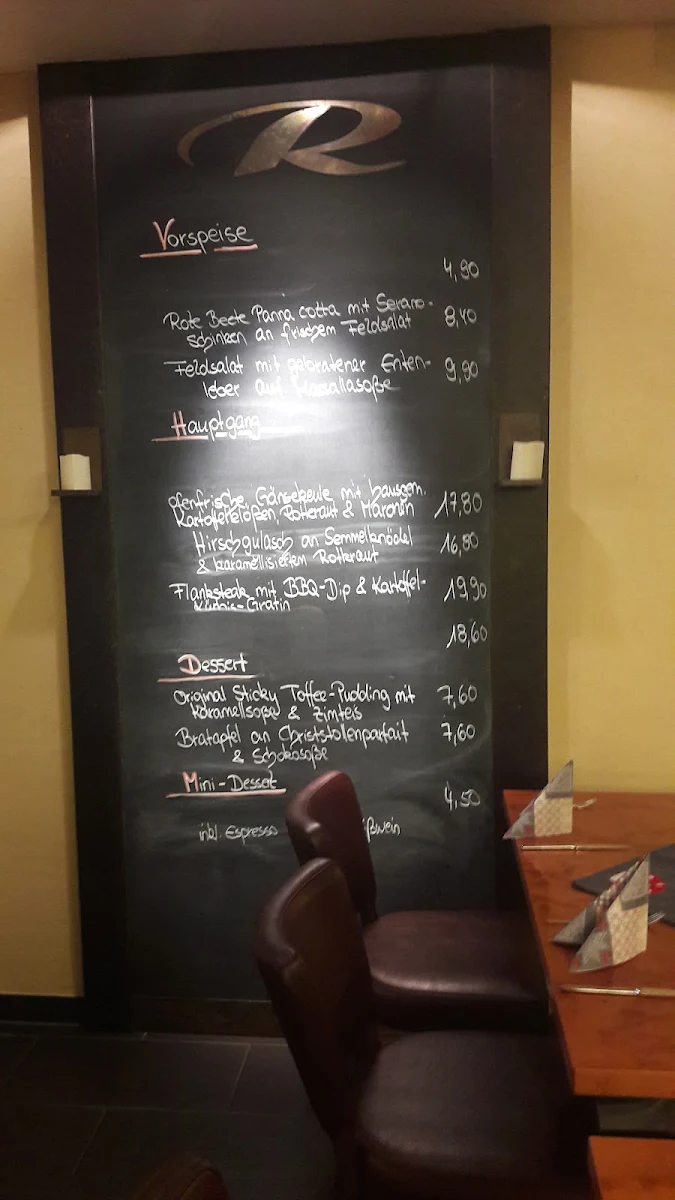 R
Vorspeise
4,90
Rote Beete Panna cotta mit Serano-
schinken an frischem Feldsalat 8,40
Feldsalat mit gebratener Enten- 9,90
leber auf Marsallasoße
Hauptgang
ofenfrische Gänsekeule mit hausgem.
Kartoffelklößen, Rotkraut & Maronen 17,80
Hirschgulasch an Semmelknödel 16,80
& karamellisiertem Rotkraut
Flanksteak mit BBQ-Dip & Kartoffel- 19,90
Kürbis-Gratin
18,60
Dessert
Original Sticky Toffee-Pudding mit 7,60
Karamellsoße & Zimteis
Bratapfel an Christstollenparfait 7,60
& Schokosoße
Mini-Dessert
4,50
inkl. Espresso